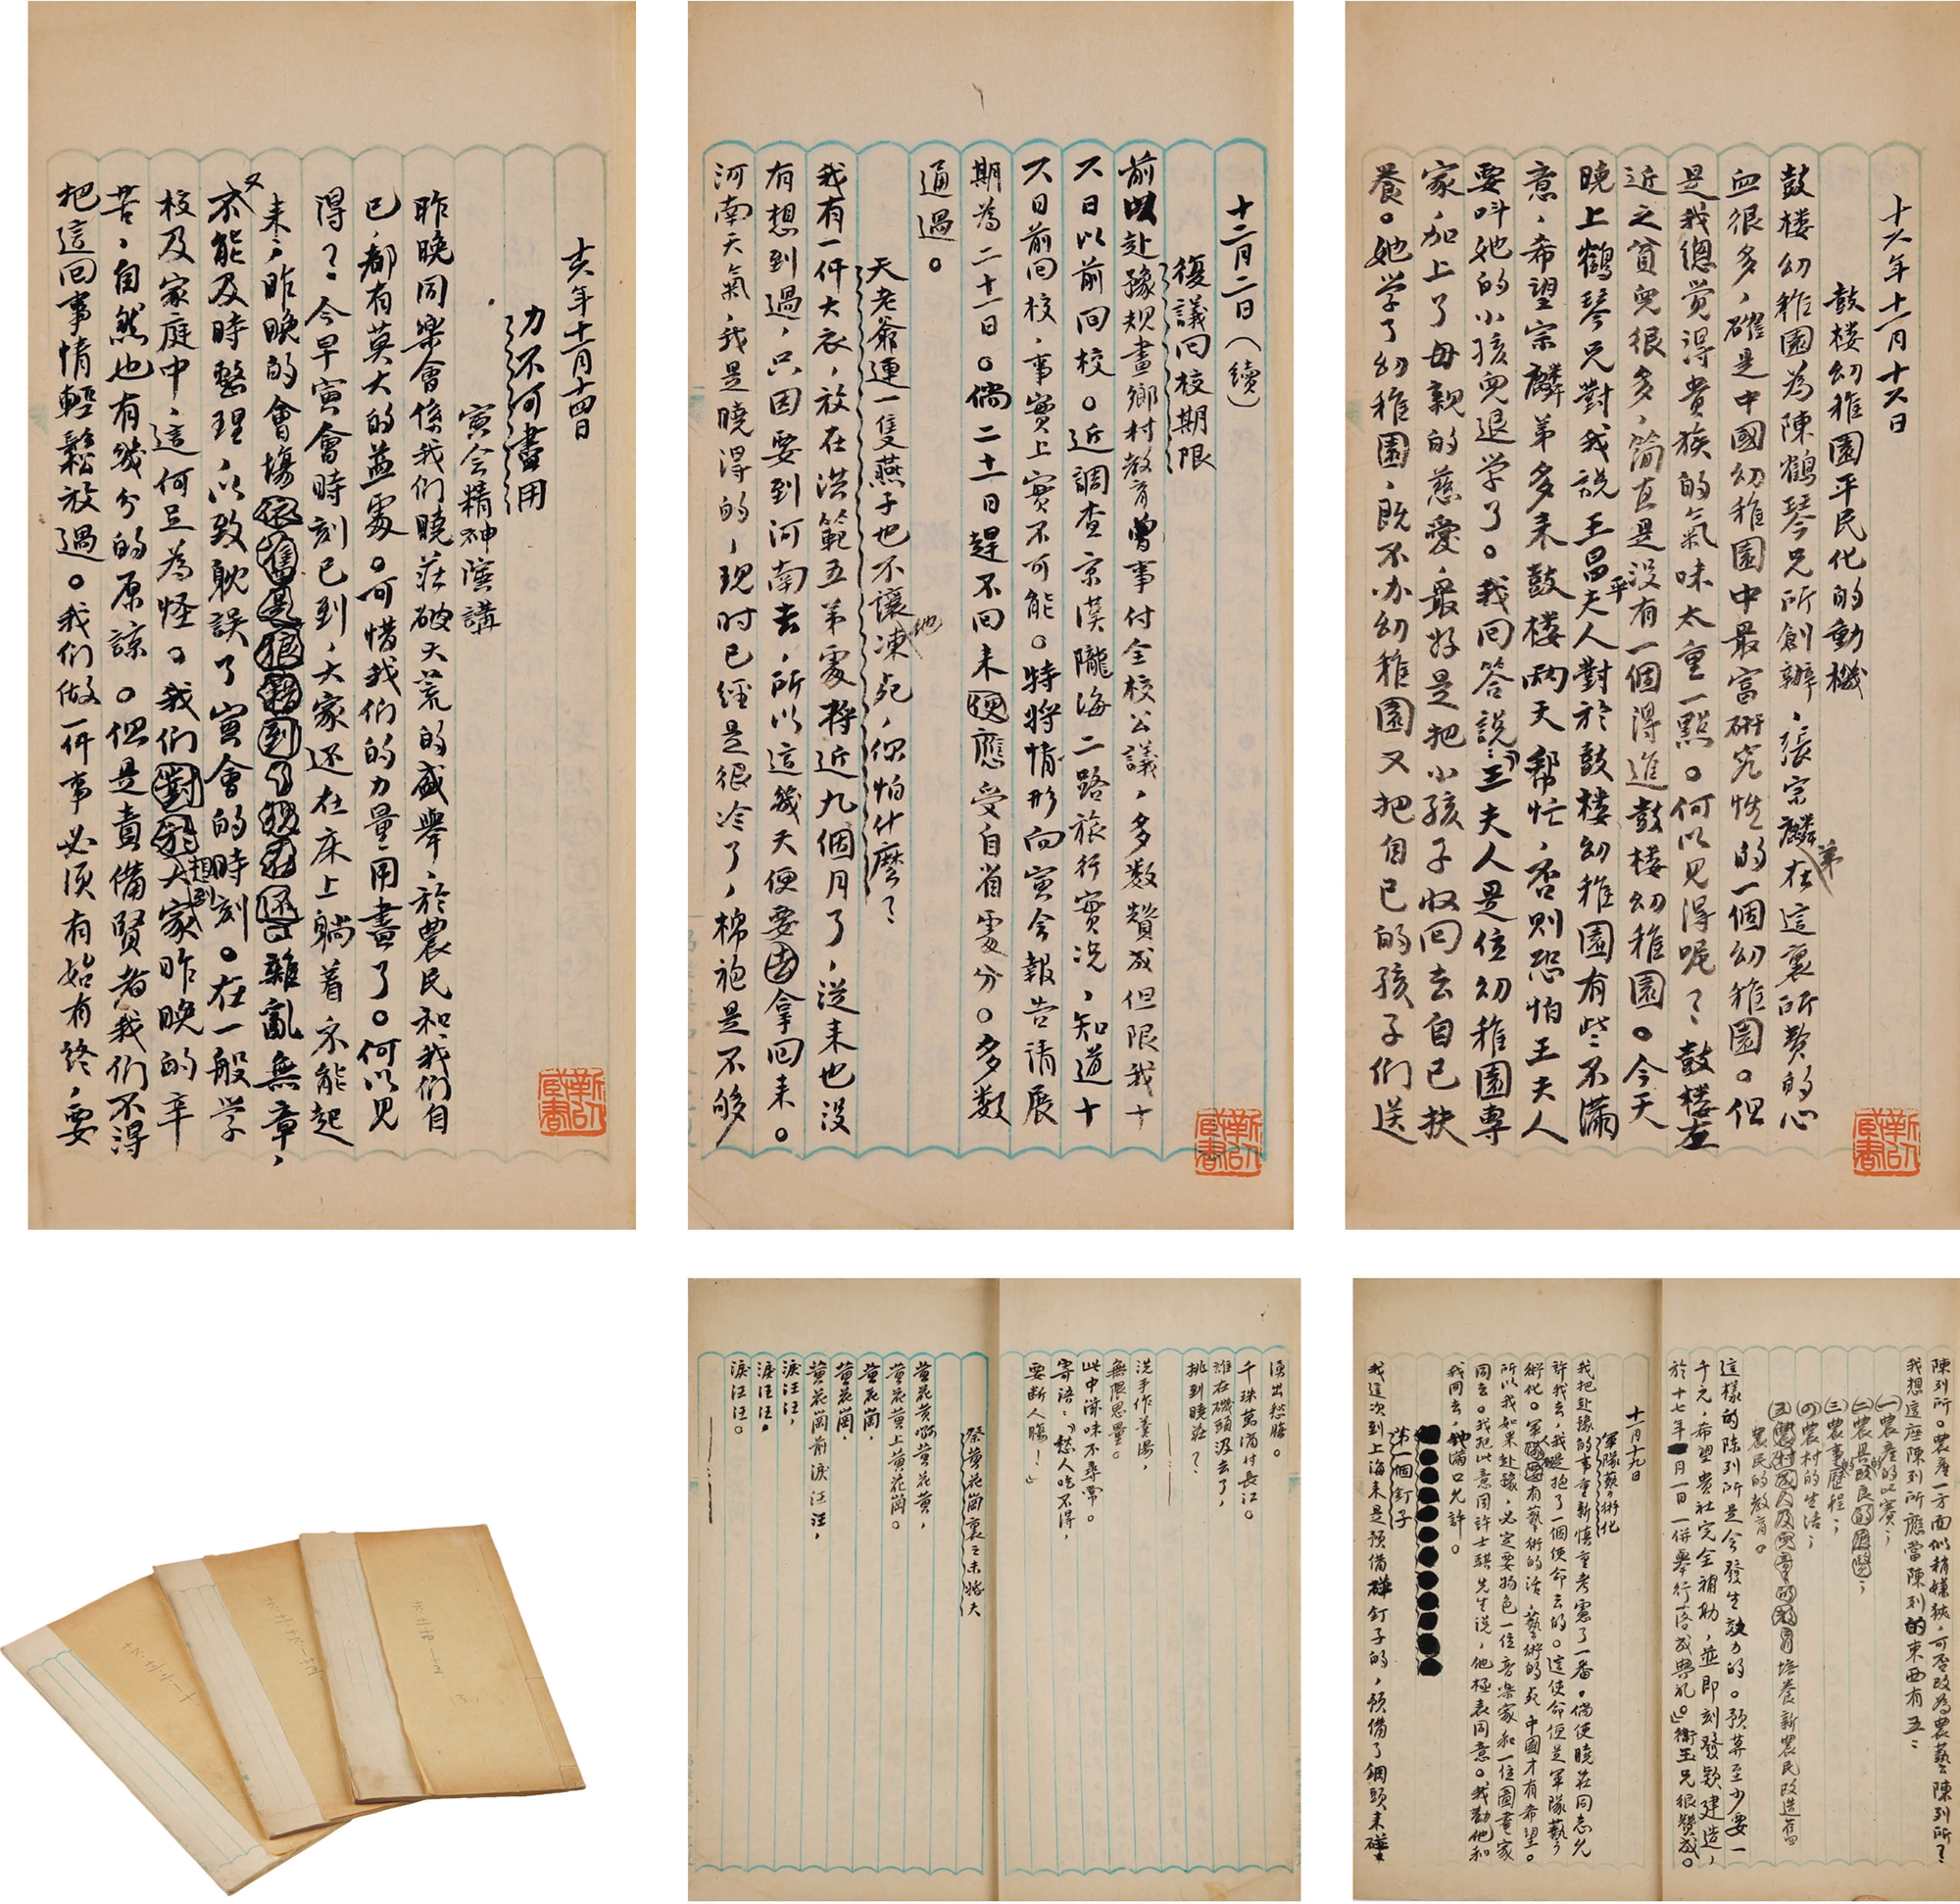 十六年十一月十六日
鼓楼幼稚園平民化的動機
鼓楼幼稚園為陳鶴琴兄所創辦，張宗麟弟在這裏所費的心
血很多，確是中國幼稚園中最富研究性的一個幼稚園。但
是我總觉得貴族的氣味太重一點。何以見得呢？鼓楼左
近之貧兒很多，简直是没有一個得進鼓楼幼稚園。今天
晚上鶴琴兄對我説王昌平夫人對於鼓楼幼稚園有些不滿
意，希望宗麟弟多来鼓楼兩天幫忙，否则恐怕王夫人
要呌她的小孩兒退学了。我回答説：「王夫人是位幼稚園專
家，加上了母親的慈愛，最好是把小孩子收回去自己扶
養。她学了幼稚園，既不办幼稚園又把自己的孩子们送
十二月二日（續）
復議回校期限
前以赴豫規畫鄉村教育曾事付全校公議，多数贊成但限我十
六日以前回校。近調查京漢隴海二路旅行實况，知道十
六日前回校，事實上實不可能。特将情形向寅会報告请展
期為二十一日。倘二十一日趕不回来便應受自省處分。多数
通過。
天老爺連一隻燕子也不讓他凍死，你怕什麽？
我有一件大衣，放在洪範五弟處将近九個月了，從来也没
有想到過，只因要到河南去，所以這幾天便要去拿回来。
河南天氣，我是曉得的，现时已經是很冷了，棉袍是不够
十六年十一月十四日
力不可盡用
寅会精神演講
昨晚同樂會係我们曉莊破天荒的盛舉，於農民和我们自
己，都有莫大的益處。可惜我们的力量用盡了。何以見
得？今早寅會時刻已到，大家还在床上躺着不能起
来；昨晚的會塲雜亂無章，
又不能及時整理，以致耽誤了寅會的時刻。在一般学
校及家庭中，這何足為怪。我们想到大家昨晚的辛
苦，自然也有幾分的原諒。但是責備賢者，我们不得
把這回事情輕鬆放過。我们做一件事必须有始有终，要
陳列所。農產一方面似稍嫌狹，可否改為農藝陳列所？
我想這座陳列所應當陳列的東西有五：
(一)農產的比賽；
(二)農具的改良；
(三)農事的歷程；
(四)農村的生活；
(五)培養新農民改造舊
農民的教育。
這樣的陈列所是会發生效力的。预算至少要一
千元，希望贵社完全補助，並即刻發款建造，
於十七年一月一日一併舉行落成典礼。」衡玉兄很贊成。
十一月十九日
軍隊藝術化
我把赴豫的事重新慎重考慮了一番。倘使曉莊同志允
許我去，我是抱了一個使命去的。這使命便是軍隊藝
術化。軍人要有藝術的活，藝術的死，中國才有希望。
所以我如果赴豫，必定要物色一位音樂家和一位圖畫家
同去。我把此意同許士騏先生说，他極表同意。我勸他和
我同去，他滿口允許。
第一個釘子
我這次到上海来是预備碰釘子的，预備了鋼頭来碰
湧出愁腸。
千珠萬滴付長江。
誰在磯頭汲去了，
挑到曉莊？
洗手作羹湯，
無限思量。
此中滋味不尋常。
寄语：「愁人吃不得，
要断人腸！」
祭黄花崗裏之未婚夫
黄花黄啊黄花黄，
黄花黄上黄花崗。
黄花崗，
黄花崗，
黄花崗前淚汪汪，
淚汪汪，
淚汪汪，
淚汪汪。